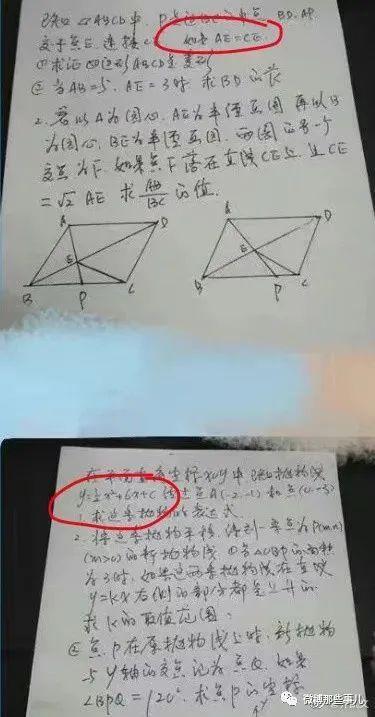 已知 ▱ABCD中，P是边BC的中点，BD、AP
交于点E，连接C  如果 AE=CE
①求证四边形ABCD是菱形
②当AB=5，AE=3时，求BD的长
2. 若以A为圆心，AE为半径画圆 再以B
为圆心，BE为半径画圆，两圆的另一个
交点为F，如果点F落在直线CE上，且CE
=√2 AE 求 AB/BC 的值.
A D E B P C
A D E B P C
在平面直角坐标xOy中 已知抛物线
y=½x²+bx+c 经过点A(-2,-1) 和点(0,-3)
1. 求这条抛物线的表达式
2. 将这条抛物线平移，得到一条点为P(m,n)
(m>0)的新抛物线 ①当△OBP的面积
为3时，如果这两条抛物线在直线
y=k 右侧的部分都是上升的
求k的取值范围.
② 点P在原抛物线上时，新抛物
与Y轴的交点记为点Q，如果
∠BPQ=120°，求点P的坐标
微博那些事儿